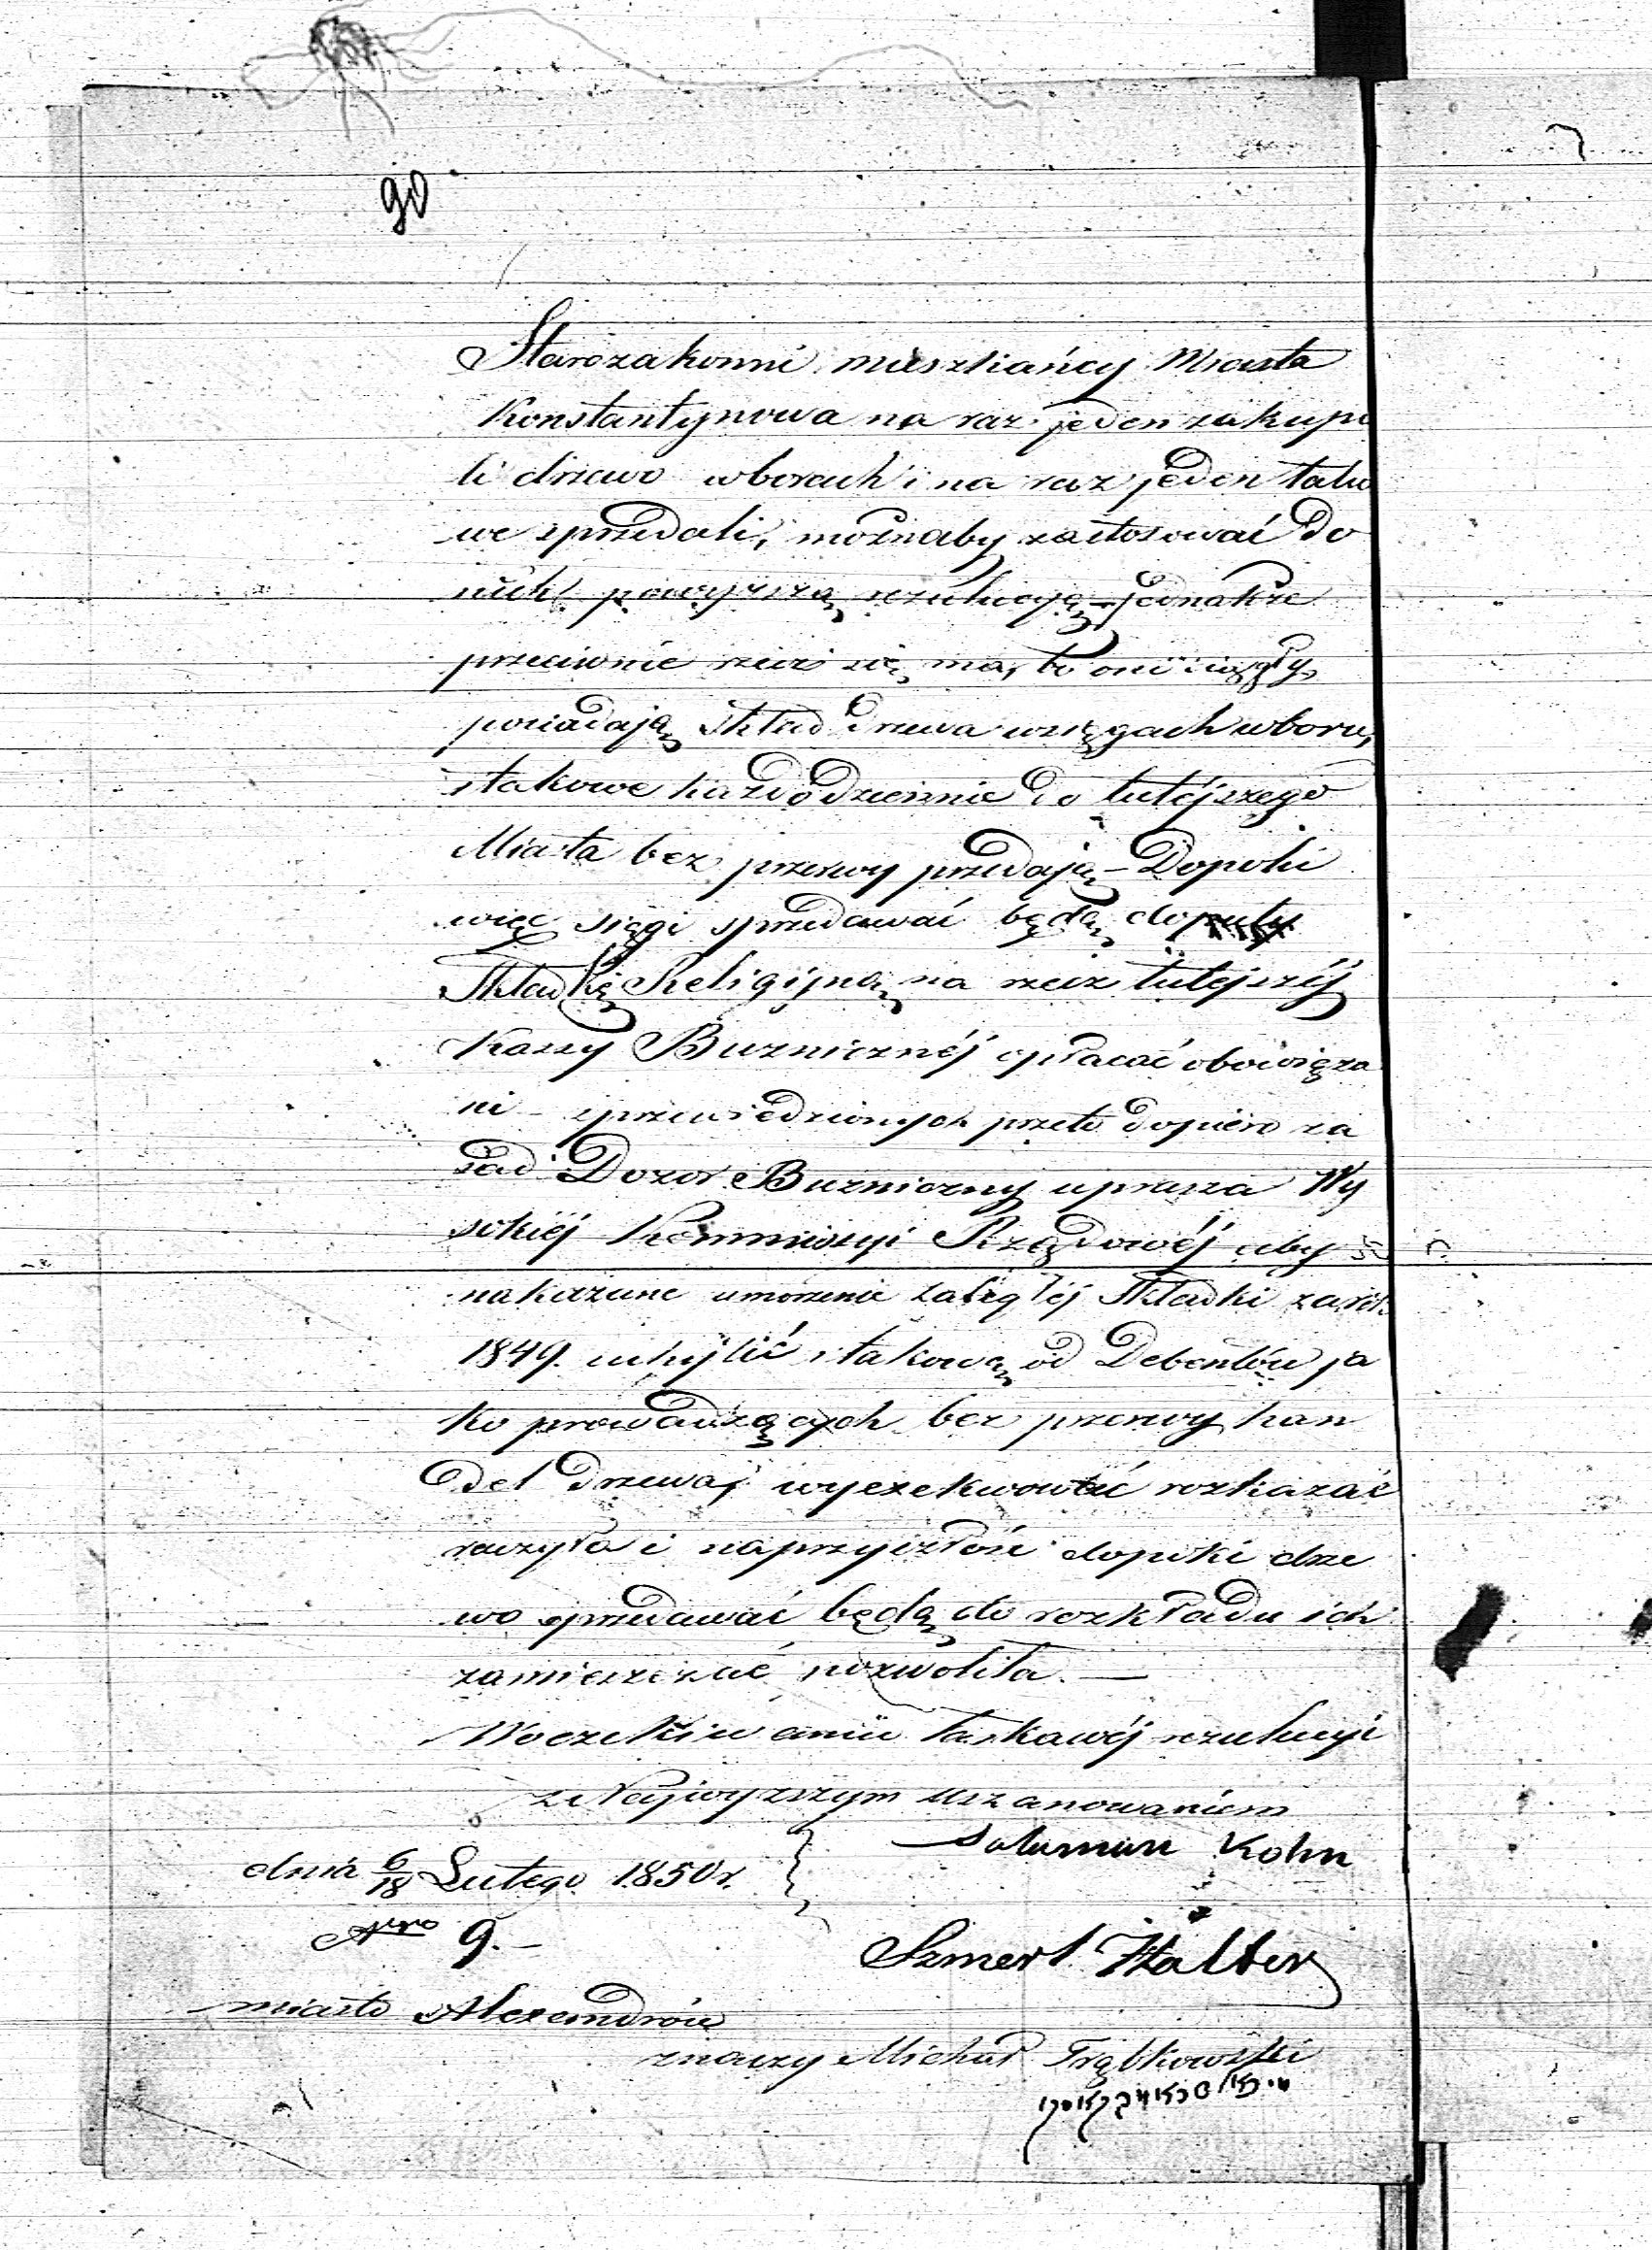 90
Starozakonni mieszkańcy Miasta
Konstantynowa na raz jeden zakupi
li drzewo w borach i na raz jeden tako
we sprzedali, możnaby zastosować do
nich powyższą rezolucyją – jednakże
przeciwnie rzecz się ma, bo oni ciągły
posiadają skład drzewa w sięgach w boru,
i takowe każdodziennie do tutéjszego
Miasta bez przerwy przedają – Dopoki
więc sięgi sprzedawać będą
Składkę Religijną na rzecz tutejszéj
Kassy Buznicznéj opłacać obowiąza
ni – z przewiedzionych przeto dopiero za
sad Dozor Buzniczny uprasza Wy
sokiéj Kommissyi Rządowéj aby
nakazane umorzenie zaległéj Składki za rok
1849. uchylić i takową od Debentów ja
ko prowadzących bez przerwy han
del drzewa, wyexekwować rozkazać
raczyła i naprzyszłość dopoki drze
wo sprzedawać będą do rozkładu ich
zamieszczać pozwoliła. —
W oczekiwaniu łaskawéj rezolucyi
z Najwyższym uszanowaniem
Salamon Kohn
dnia 6/18 Lutego 1850 r.
Nro 9. –
Szmerl Halter
miasto Alexandrów
znaczy Michał Trąbkowski